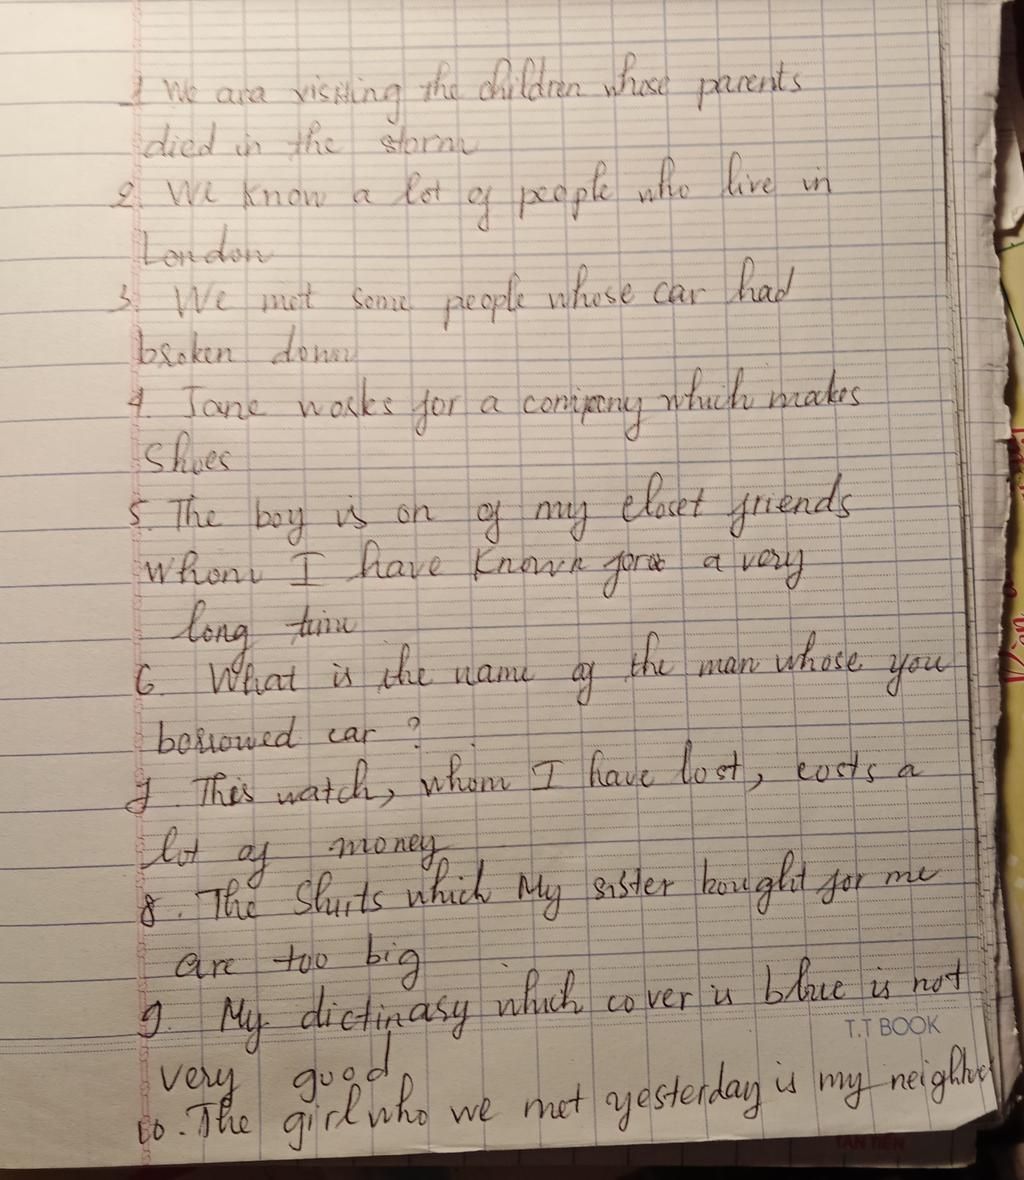 1 We are visiting the children whose parents
died in the storm
2. We know a lot of people who live in
London
3. We met some people whose car had
broken down
4. Jane works for a company which makes
shoes
5. The boy is on of my closet friends
whom I have known for a very
long time
6. What is the name of the man whose you
borrowed car ?
7. This watch, whom I have lost, costs a
lot of money
8. The Shirts which My sister bought for me
are too big
9. My dictinary which cover is blue is not
T.T BOOK
very good
10. The girl who we met yesterday is my neighbor
TAN TIEN